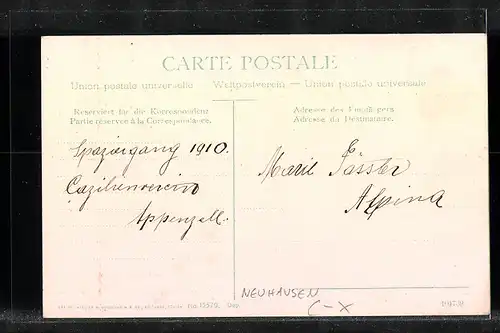 CARTE POSTALE
Union postale universelle Weltpostverein — Union postale universelle
Reserviert für die Korrespondenz
Partie réservée à la Correspondance.
Adresse des Empfängers
Adresse du Destinataire.
Spaziergang 1910.
Cäzilienverein
Appenzell.
Marie Fässler
Alpina
NEUHAUSEN
C-X
No. Dep.